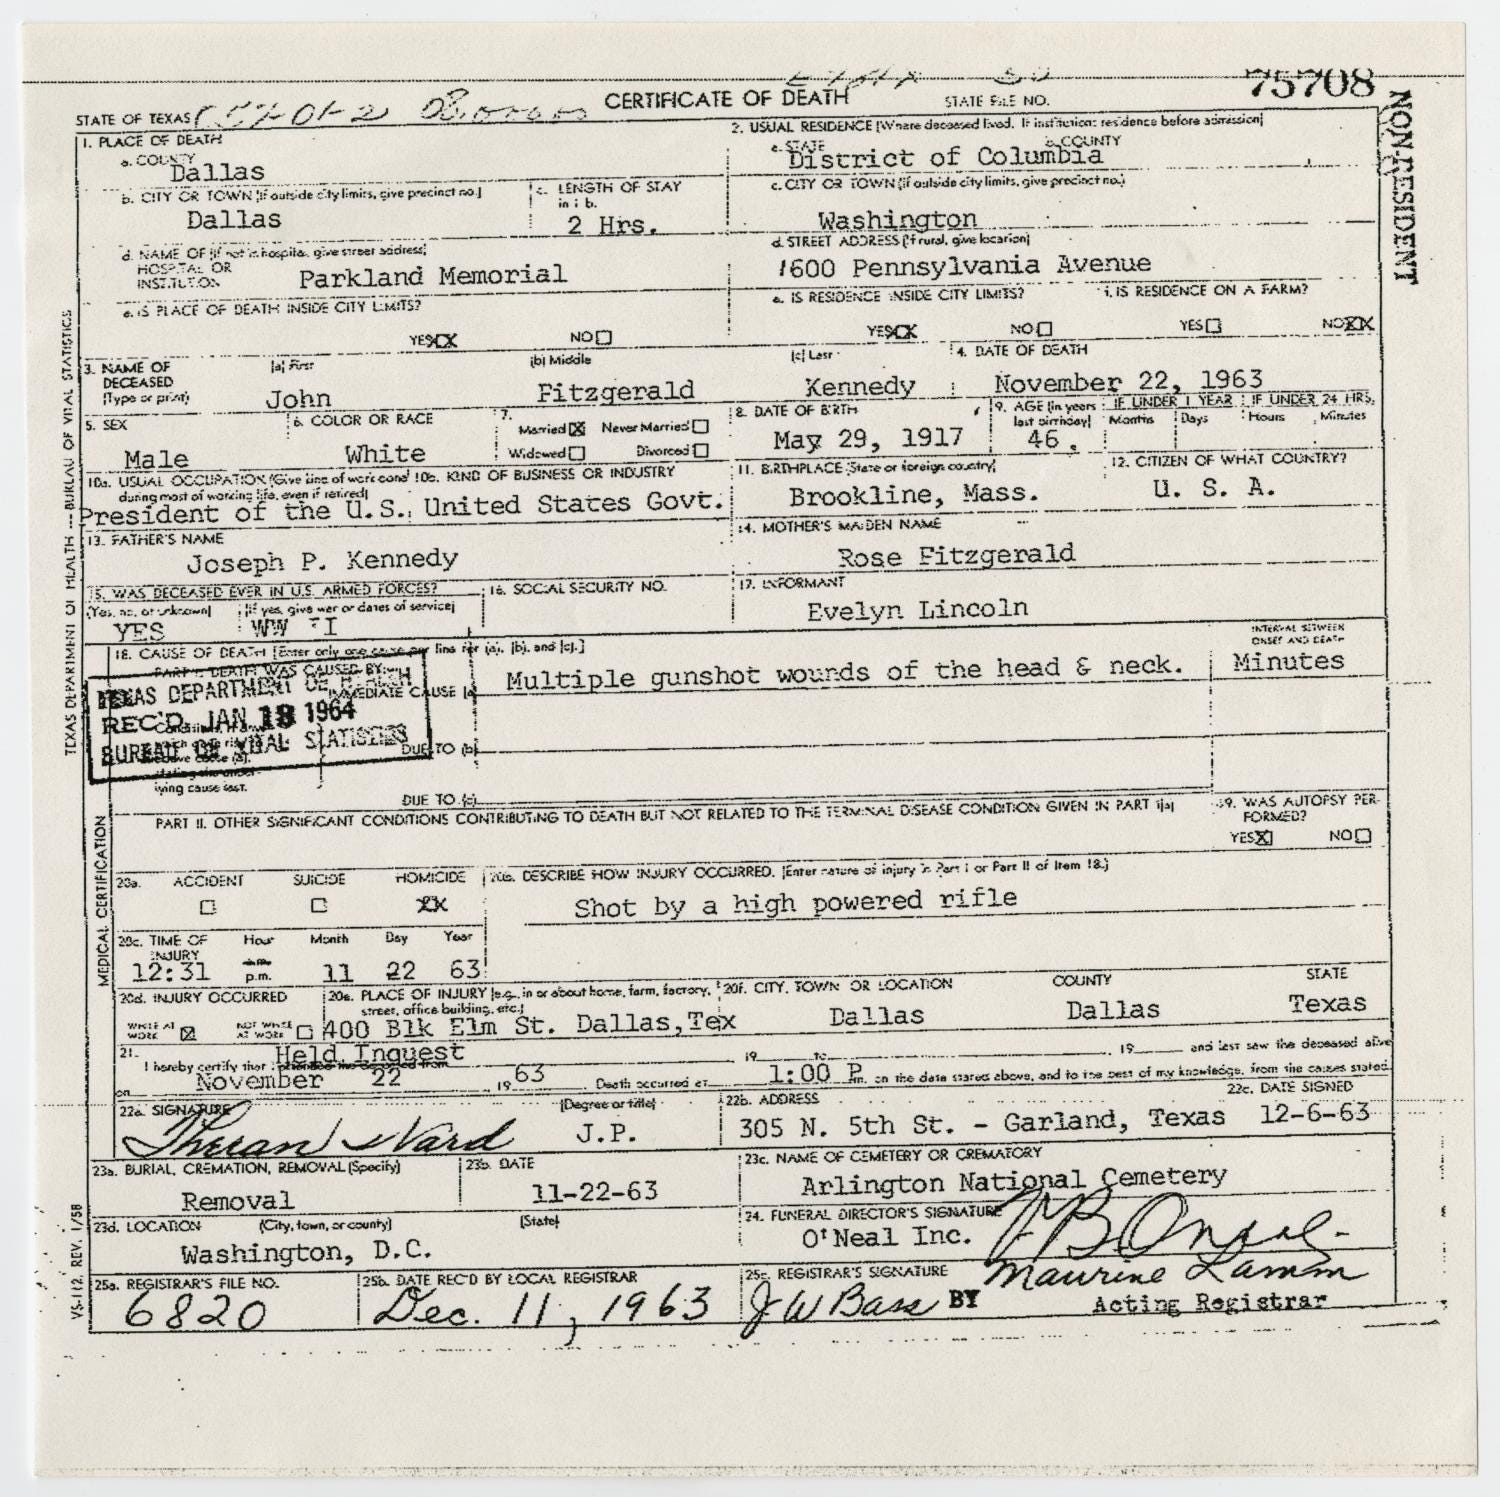 75708
STATE OF TEXAS CERTIFICATE OF DEATH STATE FILE NO.
NON-RESIDENT
1. PLACE OF DEATH
a. COUNTY
Dallas
2. USUAL RESIDENCE (Where deceased lived. If institution: residence before admission)
a. STATE b. COUNTY
District of Columbia
b. CITY OR TOWN (If outside city limits, give precinct no.)
Dallas
c. LENGTH OF STAY in 1 b.
2 Hrs.
c. CITY OR TOWN (If outside city limits, give precinct no.)
Washington
d. NAME OF (If not in hospital, give street address)
HOSPITAL OR
INSTITUTION
Parkland Memorial
d. STREET ADDRESS (If rural, give location)
1600 Pennsylvania Avenue
e. IS PLACE OF DEATH INSIDE CITY LIMITS?
YES XX NO
e. IS RESIDENCE INSIDE CITY LIMITS?
YES XX NO
f. IS RESIDENCE ON A FARM?
YES NO XX
3. NAME OF DECEASED (Type or print)
(a) First (b) Middle (c) Last
John Fitzgerald Kennedy
4. DATE OF DEATH
November 22, 1963
5. SEX
Male
6. COLOR OR RACE
White
7.
Married X Never Married
Widowed Divorced
8. DATE OF BIRTH
May 29, 1917
9. AGE (In years last birthday)
46
IF UNDER 1 YEAR
Months Days
IF UNDER 24 HRS.
Hours Minutes
10a. USUAL OCCUPATION (Give kind of work done during most of working life, even if retired)
President of the U.S.
10b. KIND OF BUSINESS OR INDUSTRY
United States Govt.
11. BIRTHPLACE (State or foreign country)
Brookline, Mass.
12. CITIZEN OF WHAT COUNTRY?
U. S. A.
13. FATHER'S NAME
Joseph P. Kennedy
14. MOTHER'S MAIDEN NAME
Rose Fitzgerald
15. WAS DECEASED EVER IN U.S. ARMED FORCES?
(Yes, no, or unknown) (If yes, give war or dates of service)
YES WW II
16. SOCIAL SECURITY NO.
17. INFORMANT
Evelyn Lincoln
18. CAUSE OF DEATH [Enter only one cause per line for (a), (b), and (c).]
PART I. DEATH WAS CAUSED BY:
IMMEDIATE CAUSE (a)
Multiple gunshot wounds of the head & neck.
INTERVAL BETWEEN
ONSET AND DEATH
Minutes
TEXAS DEPARTMENT OF HEALTH
REC'D JAN 18 1964
BUREAU OF VITAL STATISTICS
DUE TO (b)
stating the under-
lying cause last.
DUE TO (c)
PART II. OTHER SIGNIFICANT CONDITIONS CONTRIBUTING TO DEATH BUT NOT RELATED TO THE TERMINAL DISEASE CONDITION GIVEN IN PART I(a)
19. WAS AUTOPSY PER-
FORMED?
YES X NO
20a. ACCIDENT SUICIDE HOMICIDE
XX
20b. DESCRIBE HOW INJURY OCCURRED. (Enter nature of injury in Part I or Part II of Item 18.)
Shot by a high powered rifle
20c. TIME OF INJURY
Hour Month Day Year
12:31 a.m. p.m. 11 22 63
20d. INJURY OCCURRED
WHILE AT WORK X NOT WHILE AT WORK
20e. PLACE OF INJURY (e.g., in or about home, farm, factory, street, office building, etc.)
400 Blk Elm St. Dallas,Tex
20f. CITY, TOWN OR LOCATION COUNTY STATE
Dallas Dallas Texas
21. Held Inquest
I hereby certify that I attended the deceased from 19 to , 19 and last saw the deceased alive
on November 22 , 19 63 Death occurred at 1:00 P m. on the date stated above, and to the best of my knowledge, from the causes stated.
22a. SIGNATURE (Degree or title)
Theran Ward J.P.
22b. ADDRESS
305 N. 5th St. - Garland, Texas
22c. DATE SIGNED
12-6-63
23a. BURIAL, CREMATION, REMOVAL (Specify)
Removal
23b. DATE
11-22-63
23c. NAME OF CEMETERY OR CREMATORY
Arlington National Cemetery
23d. LOCATION (City, town, or county) (State)
Washington, D.C.
24. FUNERAL DIRECTOR'S SIGNATURE
O'Neal Inc.
25a. REGISTRAR'S FILE NO.
6820
25b. DATE REC'D BY LOCAL REGISTRAR
Dec. 11, 1963
25c. REGISTRAR'S SIGNATURE
J W Bass BY Maurine Lamm
Acting Registrar
TEXAS DEPARTMENT OF HEALTH — BUREAU OF VITAL STATISTICS
MEDICAL CERTIFICATION
VS-112 REV. 1/58